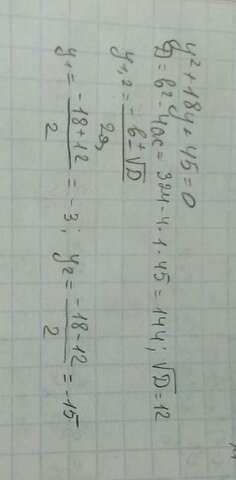 y² + 18y + 45 = 0
D = b² - 4ac = 324 - 4 · 1 · 45 = 144; √D = 12
y₁,₂ = (-b ± √D) / 2a
y₁ = (-18 + 12) / 2 = -3; y₂ = (-18 - 12) / 2 = -15